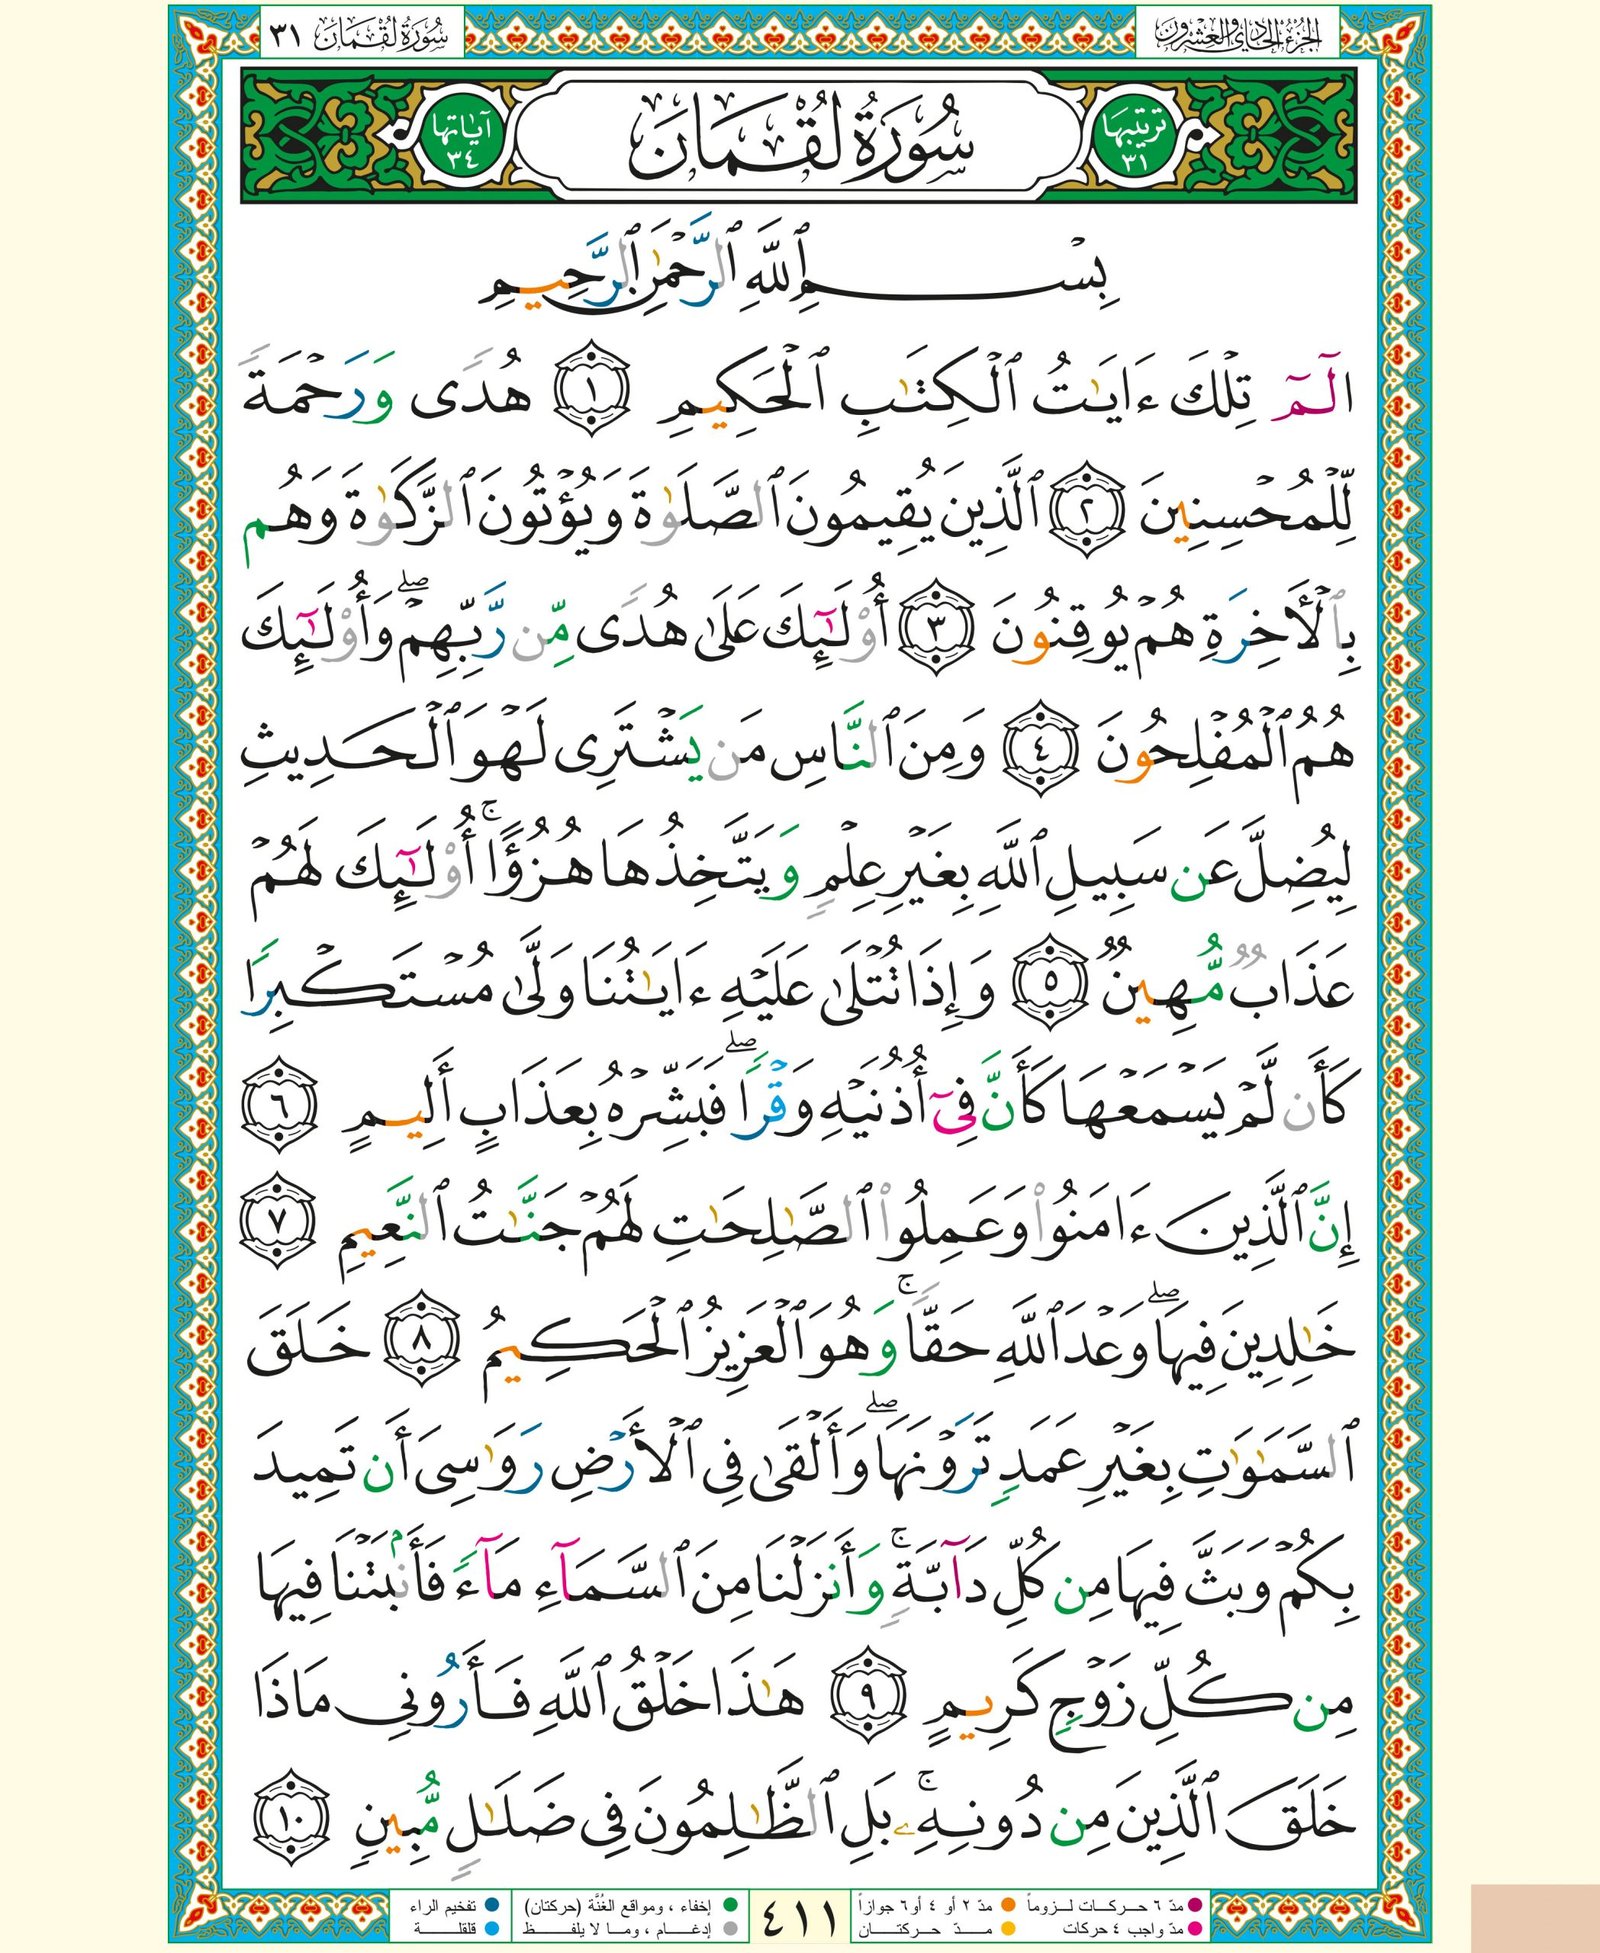 الجزء الحادي والعشرون
سُورَةُ لُقْمَان ٣١
ترتيبها ٣١
سُورَةُ لُقْمَان
آياتها ٣٤
بِسْمِ ٱللَّهِ ٱلرَّحْمَٰنِ ٱلرَّحِيمِ
الٓمٓ تِلْكَ ءَايَٰتُ ٱلْكِتَٰبِ ٱلْحَكِيمِ ١ هُدًى وَرَحْمَةً
لِّلْمُحْسِنِينَ ٢ ٱلَّذِينَ يُقِيمُونَ ٱلصَّلَوٰةَ وَيُؤْتُونَ ٱلزَّكَوٰةَ وَهُم
بِٱلْأَخِرَةِ هُمْ يُوقِنُونَ ٣ أُوْلَٰٓئِكَ عَلَىٰ هُدًى مِّن رَّبِّهِمْ ۖ وَأُوْلَٰٓئِكَ
هُمُ ٱلْمُفْلِحُونَ ٤ وَمِنَ ٱلنَّاسِ مَن يَشْتَرِى لَهْوَ ٱلْحَدِيثِ
لِيُضِلَّ عَن سَبِيلِ ٱللَّهِ بِغَيْرِ عِلْمٍ وَيَتَّخِذُهَا هُزُؤًا ۚ أُوْلَٰٓئِكَ لَهُمْ
عَذَابٌ مُّهِينٌ ٥ وَإِذَا تُتْلَىٰ عَلَيْهِ ءَايَٰتُنَا وَلَّىٰ مُسْتَكْبِرًا
كَأَن لَّمْ يَسْمَعْهَا كَأَنَّ فِىٓ أُذُنَيْهِ وَقْرًا ۖ فَبَشِّرْهُ بِعَذَابٍ أَلِيمٍ ٦
إِنَّ ٱلَّذِينَ ءَامَنُوا۟ وَعَمِلُوا۟ ٱلصَّٰلِحَٰتِ لَهُمْ جَنَّٰتُ ٱلنَّعِيمِ ٧
خَٰلِدِينَ فِيهَا ۖ وَعْدَ ٱللَّهِ حَقًّا ۚ وَهُوَ ٱلْعَزِيزُ ٱلْحَكِيمُ ٨ خَلَقَ
ٱلسَّمَٰوَٰتِ بِغَيْرِ عَمَدٍ تَرَوْنَهَا ۖ وَأَلْقَىٰ فِى ٱلْأَرْضِ رَوَٰسِىَ أَن تَمِيدَ
بِكُمْ وَبَثَّ فِيهَا مِن كُلِّ دَآبَّةٍ ۚ وَأَنزَلْنَا مِنَ ٱلسَّمَآءِ مَآءً فَأَنۢبَتْنَا فِيهَا
مِن كُلِّ زَوْجٍ كَرِيمٍ ٩ هَٰذَا خَلْقُ ٱللَّهِ فَأَرُونِى مَاذَا
خَلَقَ ٱلَّذِينَ مِن دُونِهِۦ ۚ بَلِ ٱلظَّٰلِمُونَ فِى ضَلَٰلٍ مُّبِينٍ ١٠
مدّ ٦ حركات لزوماً مدّ ٢ أو ٤ أو ٦ جوازاً
مدّ واجب ٤ حركات مدّ حركتان
٤١١
إخفاء ، ومواقع الغُنَّة (حركتان) تفخيم الراء
إدغام ، وما لا يلفظ قلقلة